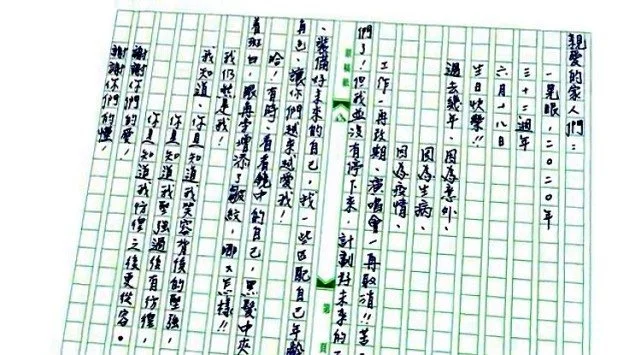 親愛的家人們：
一晃眼，二○二○年
三十二週年
六月十八日
生日快樂!!
過去幾年，因為意外、
因為生病、
因為疫情、
工作一再改期、演唱會一再取消!!苦
們了！但我並沒有停下來，計劃好未來的
、裝備好未來的自己，我一些匹配自己年齡
自己、讓你們越來越愛我！
哈！有時，看看鏡中的自己，黑髮中夾
著斑白，眼角也增添了皺紋，哪又怎樣!!
我仍然是我！
我知道、你真知道我笑容背後的堅強，
你真知道我堅強過後有彷徨，
你真知道我彷徨之後更從容。
謝謝你們的愛！
謝謝你們的懂！
原稿紙
第 頁